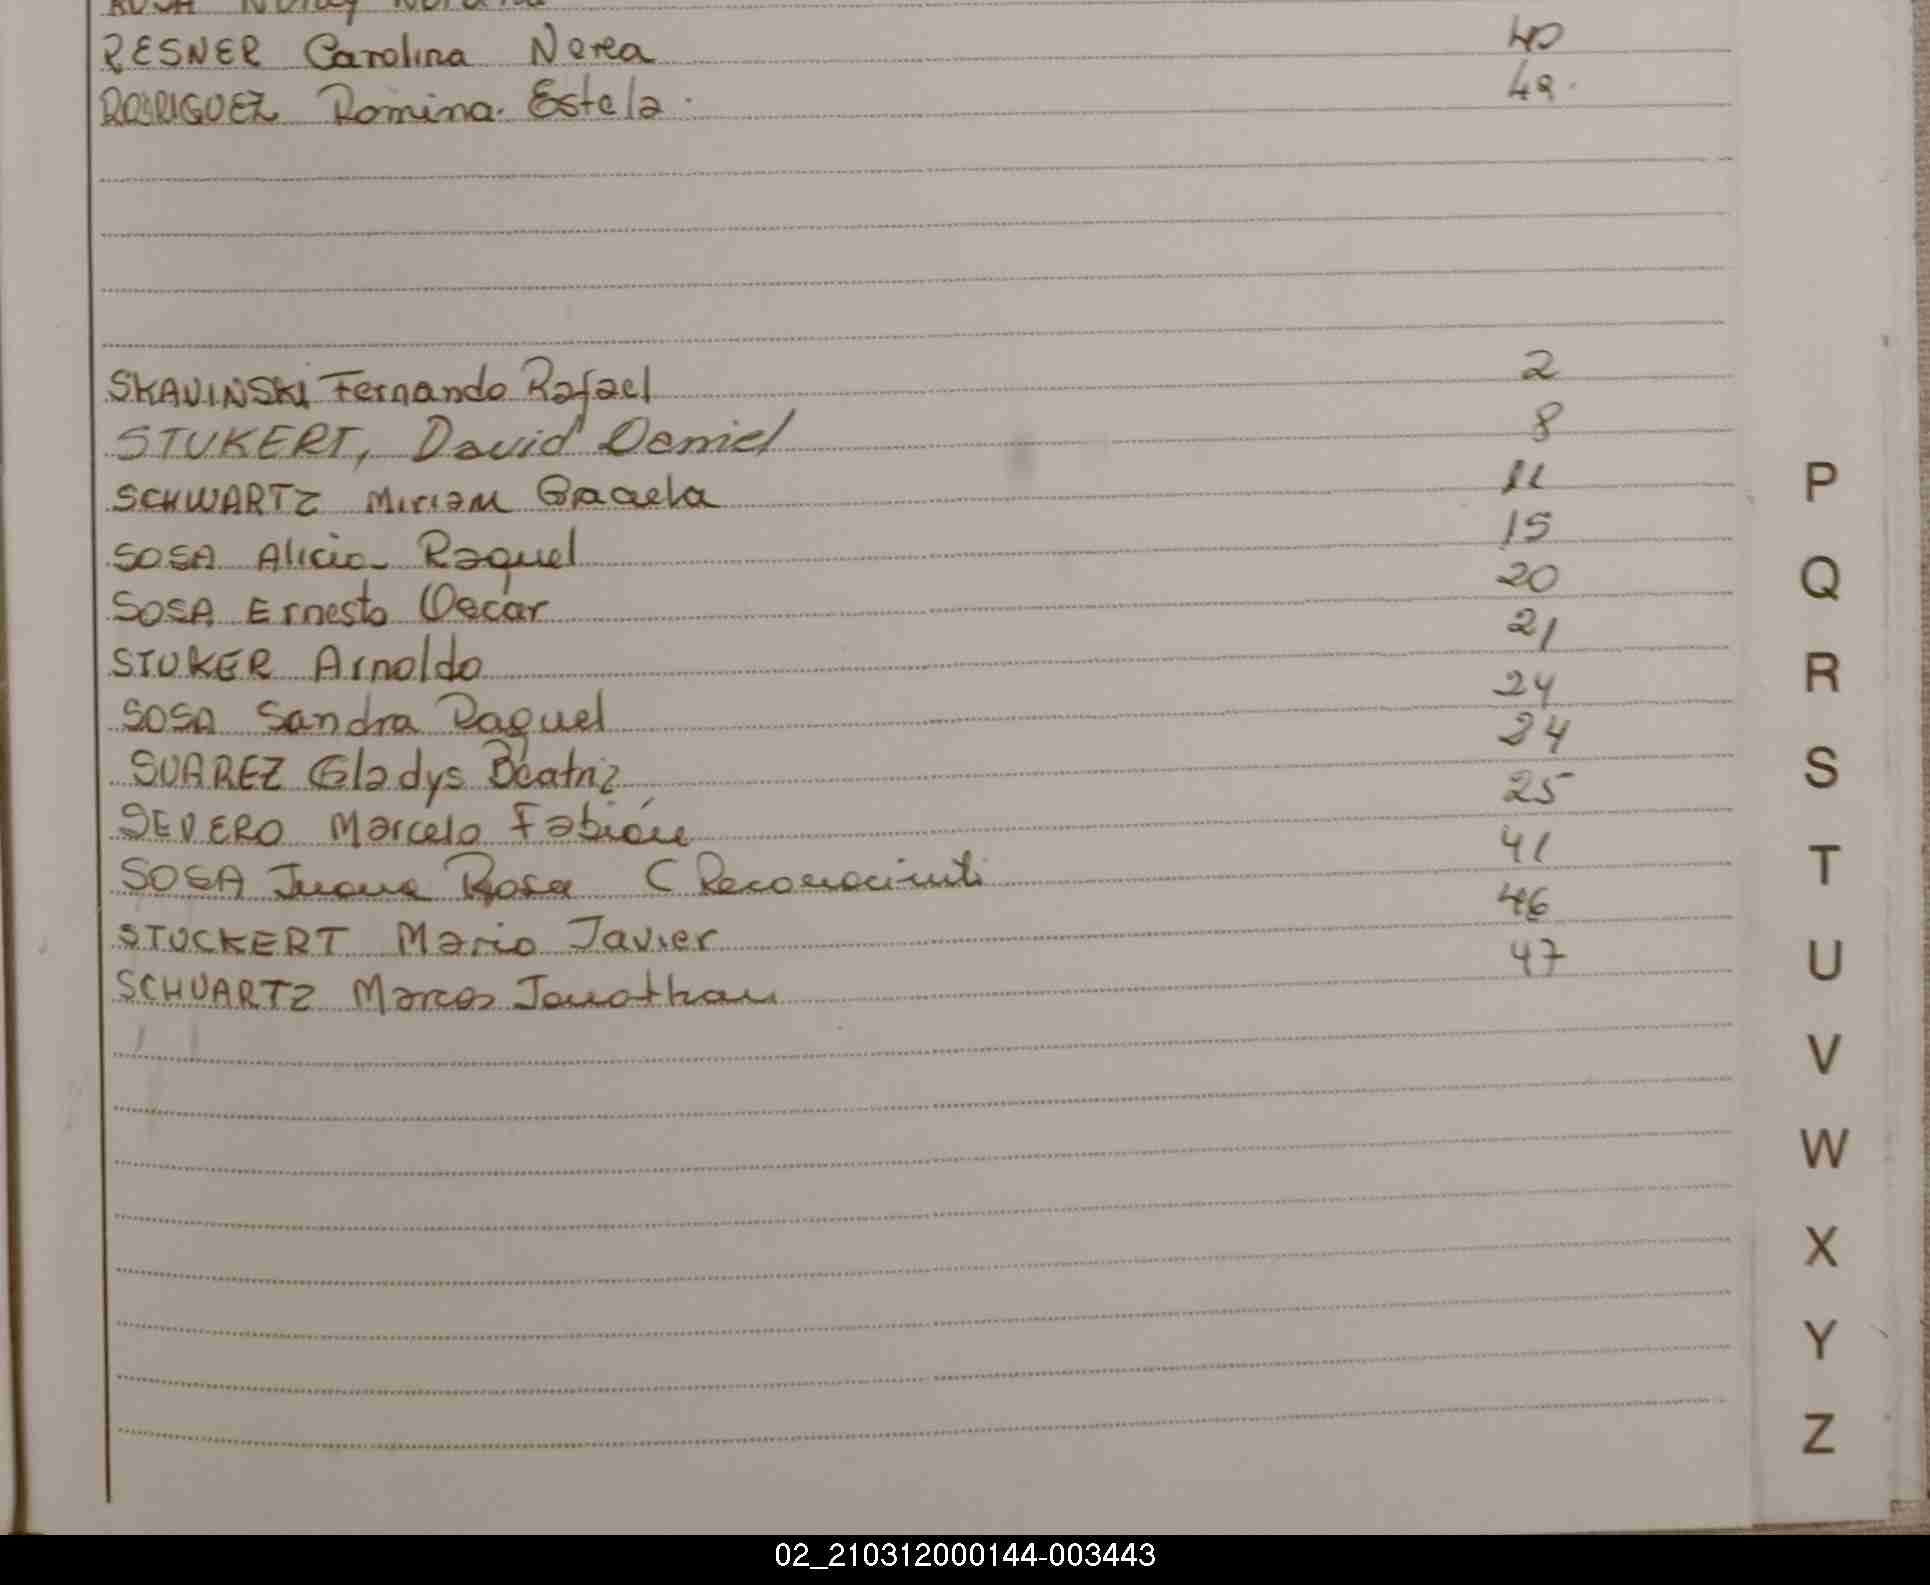 RESNER Carolina Nerea 40
RODRIGUEZ Romina Estela 48
SKAVINSKI Fernando Rafael 2
STUKERT, David Daniel 8
SCHWARTZ Miriam Graciela 11
SOSA Alicia Raquel 15
SOSA Ernesto Oscar 20
STUKER Arnoldo 21
SOSA Sandra Raquel 24
SUAREZ Gladys Beatriz 24
SEVERO Marcelo Fabián 25
SOSA Juana Rosa (Reconocimiento 41
STUCKERT Mario Javier 46
SCHVARTZ Marcos Jonathan 47
P
Q
R
S
T
U
V
W
X
Y
Z
02_210312000144-003443